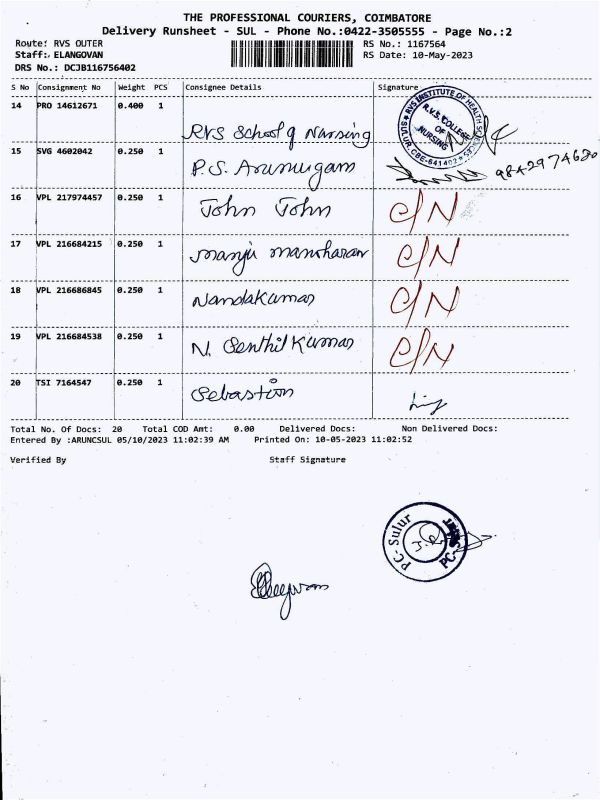 THE PROFESSIONAL COURIERS, COIMBATORE
Delivery Runsheet - SUL - Phone No.:0422-3505555 - Page No.:2
Route: RVS OUTER RS No.: 1167564
Staff: ELANGOVAN RS Date: 10-May-2023
DRS No.: DCJB116756402
S No Consignment No Weight PCS Consignee Details Signature
14 PRO 14612671 0.400 1 RVS School of Nursing
RVS INSTITUTE OF HEALTH
R.V.S. COLLEGE OF NURSING
SULUR, CBE-641402
15 SVG 4602042 0.250 1 P.S. Arumugam 9842974680
16 VPL 217974457 0.250 1 John John C/N
17 VPL 216684215 0.250 1 manju manoharan C/N
18 VPL 216686845 0.250 1 Nandakumar C/N
19 VPL 216684538 0.250 1 N. Senthil Kumar C/N
20 TSI 7164547 0.250 1 Sebastion
Total No. Of Docs: 20 Total COD Amt: 0.00 Delivered Docs: Non Delivered Docs:
Entered By :ARUNCSUL 05/10/2023 11:02:39 AM Printed On: 10-05-2023 11:02:52
Verified By Staff Signature
PC-Sulur
PC-